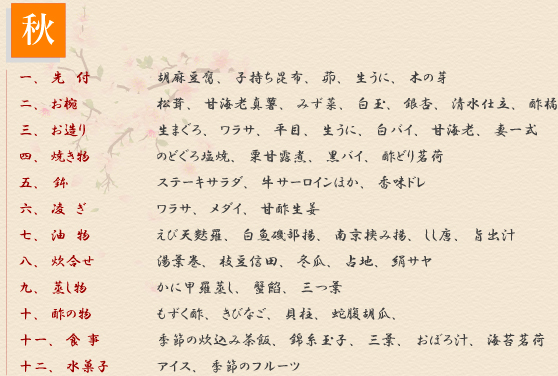 秋
一、 先 付 胡麻豆腐、 子持ち昆布、 茆、 生うに、 木の芽
二、 お椀 松茸、 甘海老真薯、 みず菜、 白玉、 銀杏、 清水仕立、 酢橘
三、 お造り 生まぐろ、 ワラサ、 平目、 生うに、 白バイ、 甘海老、 妻一式
四、 焼き物 のどぐろ塩焼、 栗甘露煮、 黒バイ、 酢どり茗荷
五、 鉢 ステーキサラダ、 牛サーロインほか、 香味ドレ
六、 凌 ぎ ワラサ、 メダイ、 甘酢生姜
七、 油 物 えび天麩羅、 白魚磯部揚、 南京挟み揚、 しし唐、 旨出汁
八、 炊合せ 湯葉巻、 枝豆信田、 冬瓜、 占地、 絹サヤ
九、 蒸し物 かに甲羅蒸し、 蟹餡、 三つ葉
十、 酢の物 もずく酢、 きびなご、 貝柱、 蛇腹胡瓜、
十一、 食 事 季節の炊込み茶飯、 錦糸玉子、 三葉、 おぼろ汁、 海苔茗荷
十二、 水菓子 アイス、 季節のフルーツ